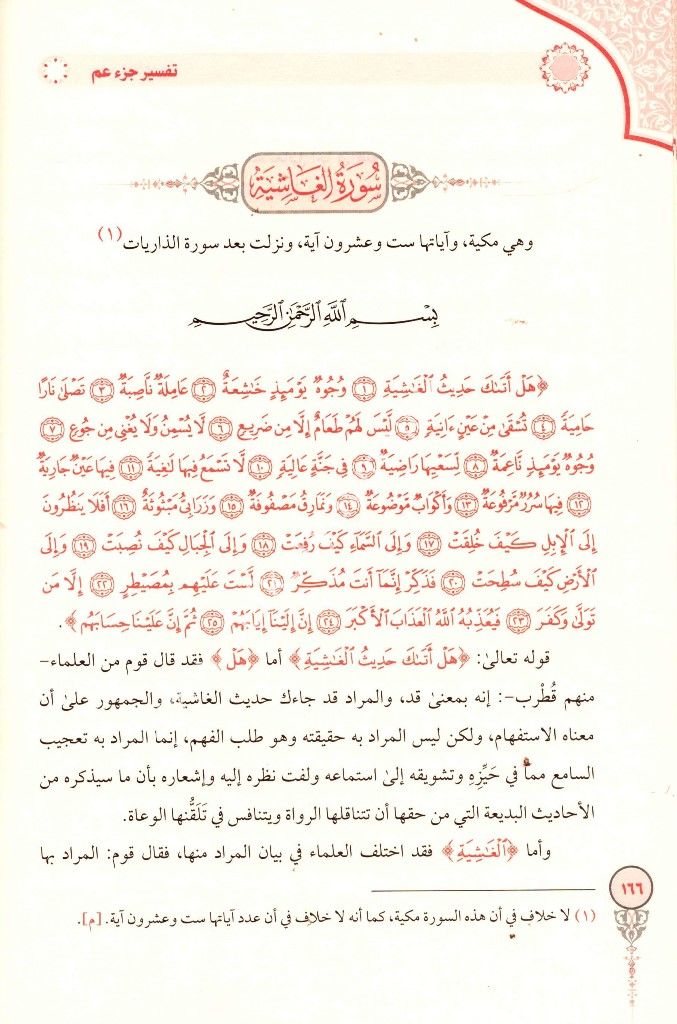 تفسير جزء عم
سُورَةُ الغَاشِيَةِ
وهي مكية، وآياتها ست وعشرون آية، ونزلت بعد سورة الذاريات(١)
بِسْمِ ٱللَّهِ ٱلرَّحْمَٰنِ ٱلرَّحِيمِ
﴿هَلْ أَتَىٰكَ حَدِيثُ ٱلْغَٰشِيَةِ ١ وُجُوهٌ يَوْمَئِذٍ خَٰشِعَةٌ ٢ عَامِلَةٌ نَّاصِبَةٌ ٣ تَصْلَىٰ نَارًا
حَامِيَةً ٤ تُسْقَىٰ مِنْ عَيْنٍ ءَانِيَةٍ ٥ لَّيْسَ لَهُمْ طَعَامٌ إِلَّا مِن ضَرِيعٍ ٦ لَّا يُسْمِنُ وَلَا يُغْنِي مِن جُوعٍ ٧
وُجُوهٌ يَوْمَئِذٍ نَّاعِمَةٌ ٨ لِّسَعْيِهَا رَاضِيَةٌ ٩ فِي جَنَّةٍ عَالِيَةٍ ١٠ لَّا تَسْمَعُ فِيهَا لَٰغِيَةً ١١ فِيهَا عَيْنٌ جَارِيَةٌ
١٢ فِيهَا سُرُرٌ مَّرْفُوعَةٌ ١٣ وَأَكْوَابٌ مَّوْضُوعَةٌ ١٤ وَنَمَارِقُ مَصْفُوفَةٌ ١٥ وَزَرَابِيُّ مَبْثُوثَةٌ ١٦ أَفَلَا يَنظُرُونَ
إِلَى ٱلْإِبِلِ كَيْفَ خُلِقَتْ ١٧ وَإِلَى ٱلسَّمَآءِ كَيْفَ رُفِعَتْ ١٨ وَإِلَى ٱلْجِبَالِ كَيْفَ نُصِبَتْ ١٩ وَإِلَى
ٱلْأَرْضِ كَيْفَ سُطِحَتْ ٢٠ فَذَكِّرْ إِنَّمَآ أَنتَ مُذَكِّرٌ ٢١ لَّسْتَ عَلَيْهِم بِمُصَيْطِرٍ ٢٢ إِلَّا مَن
تَوَلَّىٰ وَكَفَرَ ٢٣ فَيُعَذِّبُهُ ٱللَّهُ ٱلْعَذَابَ ٱلْأَكْبَرَ ٢٤ إِنَّ إِلَيْنَآ إِيَابَهُمْ ٢٥ ثُمَّ إِنَّ عَلَيْنَا حِسَابَهُم﴾.
قوله تعالىٰ: ﴿هَلْ أَتَىٰكَ حَدِيثُ ٱلْغَٰشِيَةِ﴾ أما ﴿هَلْ﴾ فقد قال قوم من العلماء-
منهم قُطْرب-: إنه بمعنىٰ قد، والمراد قد جاءك حديث الغاشية، والجمهور علىٰ أن
معناه الاستفهام، ولكن ليس المراد به حقيقته وهو طلب الفهم، إنما المراد به تعجيب
السامع مما في حَيِّزِهِ وتشويقه إلىٰ استماعه ولفت نظره إليه وإشعاره بأن ما سيذكره من
الأحاديث البديعة التي من حقها أن تتناقلها الرواة ويتنافس في تَلَقُّنها الوعاة.
وأما ﴿ٱلْغَٰشِيَةِ﴾ فقد اختلف العلماء في بيان المراد منها، فقال قوم: المراد بها
(١) لا خلاف في أن هذه السورة مكية، كما أنه لا خلاف في أن عدد آياتها ست وعشرون آية. [م].
١٦٦